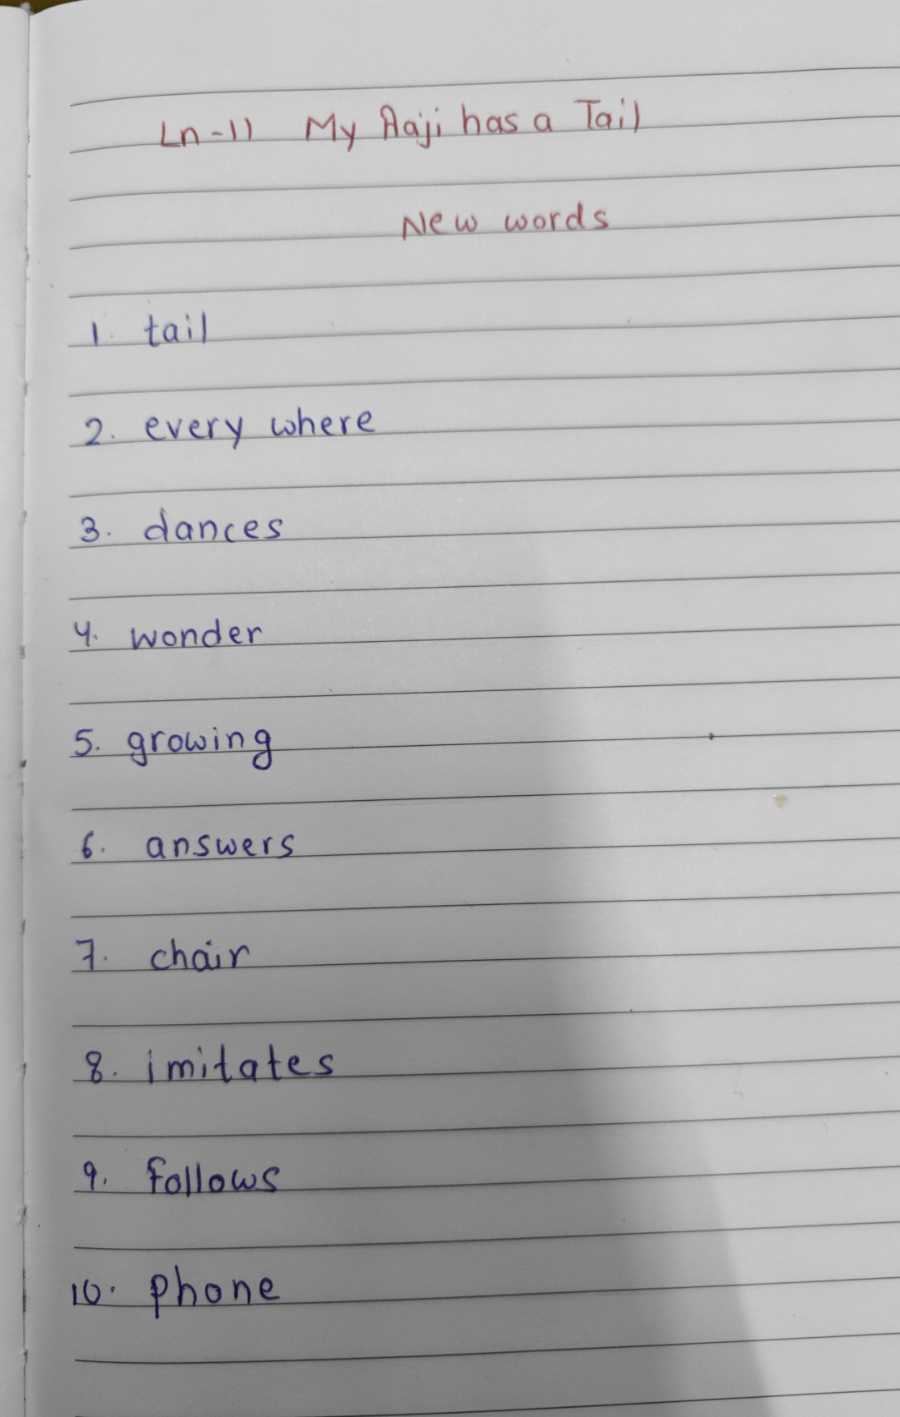 Ln-11 My Aaji has a Tail
New words
1. tail
2. every where
3. dances
4. wonder
5. growing
6. answers
7. chair
8. imitates
9. follows
10. phone